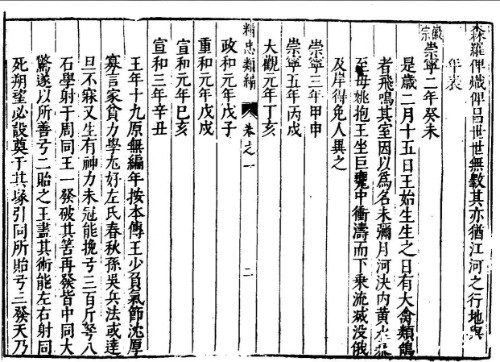 森羅俾熾俾昌世世無斁其亦猶江河之行地與
年表
徽宗
崇寧二年癸未
是歲二月十五日王始生生之日有大禽類鵠
者飛鳴其室因以爲名未彌月河決內黃水
至母姚抱王坐巨甕中衝濤而下乘流滅沒俄
及岸得免人異之
崇寧三年甲申
崇寧五年丙戌
大觀元年丁亥
精忠類編 卷之一 二
政和元年戊子
重和元年戊戌
宣和元年己亥
宣和三年辛丑
王年十九原無編年按本傳王少負氣節沈厚
寡言家貧力學尤好左氏春秋孫吳兵法或達
旦不寐又生有神力未冠能挽弓三百斤弩八
石學射于周同王一發破其筈再發皆中同大
驚遂以所善弓二貽之王盡其術能左右射同
死朔望必設奠于其塚引同所貽弓三發天乃